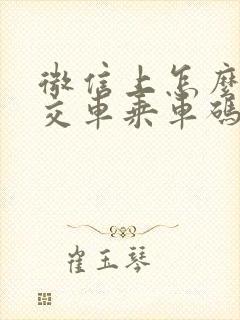 微信上怎麼
交車乘車碼
崔玉琴